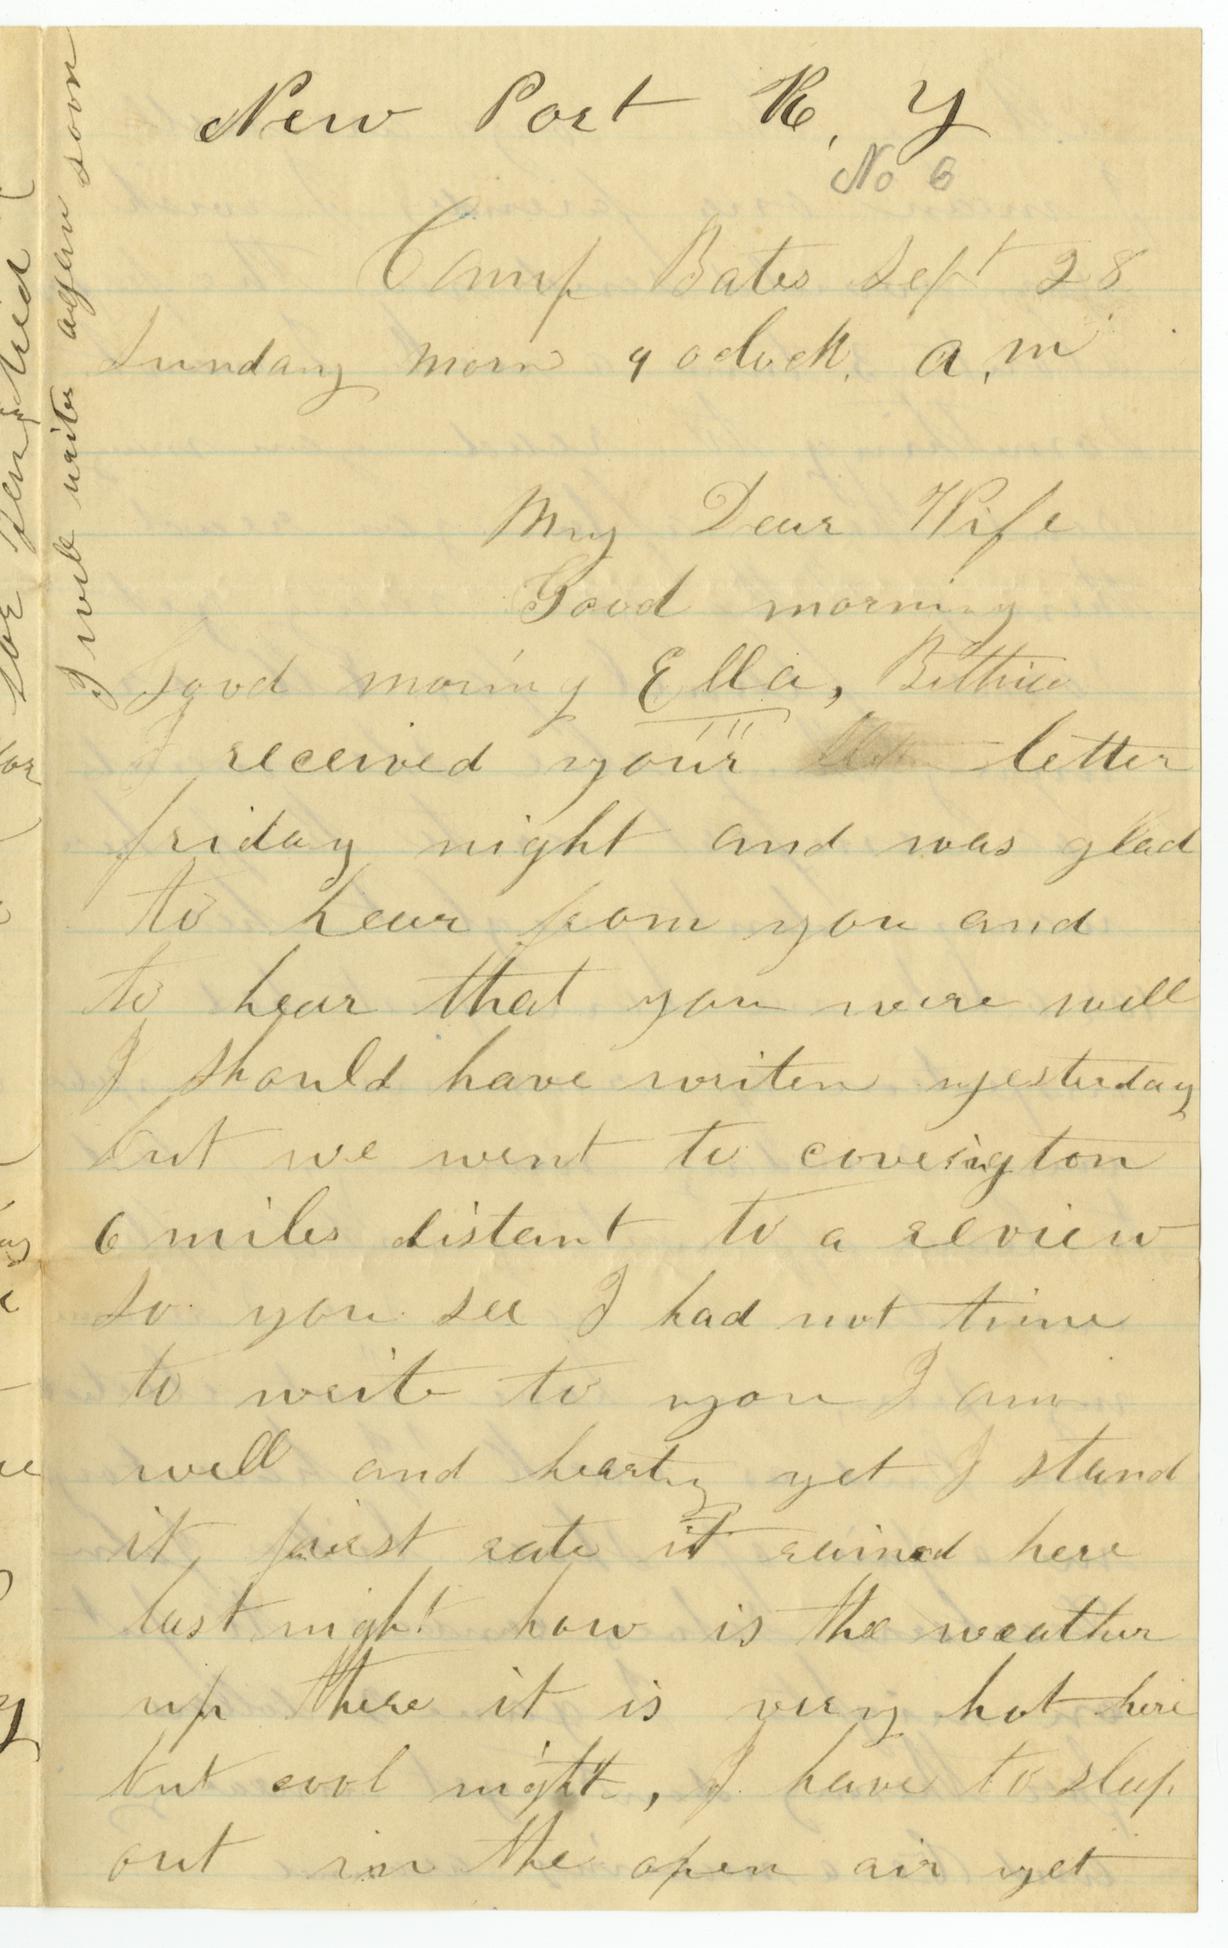 New Port K, Y
No 6
Camp Bates Sept 28
Sunday morn 9 oclock, a, m
My Dear Wife
Good morning
Good morning Ella, Bettricc
I received your letter
friday night and was glad
to hear from you and
to hear that you were well
I should have writen yesterday
but we went to covesington
6 miles distant to a review
So you see I had not time
to write to you I am
well and hearty yet I stand
it first rate it rained here
last night how is the weather
up there it is very hot here
but cool night, I have to sleep
out in the open air yet
I will write agen soon